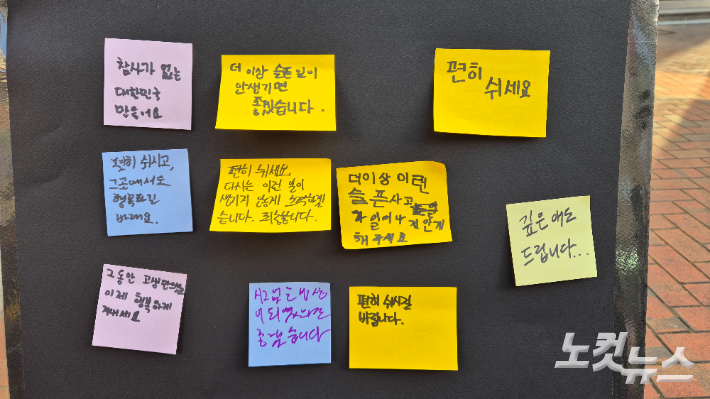 참사가 없는
대한민국
만들어요
더 이상 슬픈 일이
안생기면
좋겠습니다.
편히
쉬세요
편히 쉬시고,
그곳에서도
행복하길
바래요.
편히 쉬세요,
다시는 이런 일이
생기지 않게 노력하겠
습니다. 죄송합니다.
더이상 이런
슬픈사고
가 일어나지 않게
해주세요
깊은 애도
드립니다...
그동안
이제 행복하게
지내세요
좋겠습니다
편히 쉬시길
바랍니다.
노컷뉴스